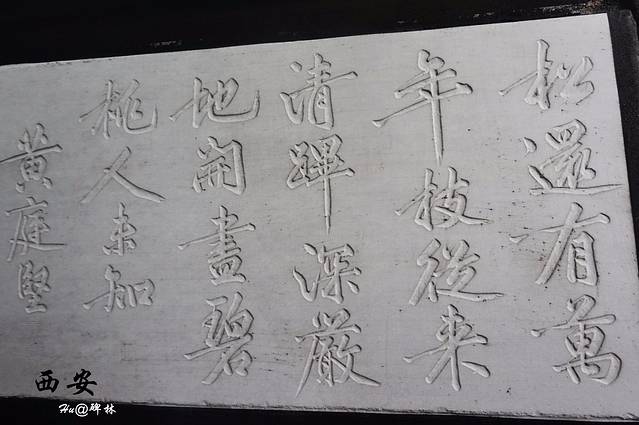 松還有萬
年枝從来
清蹕深嚴
地開盡碧
桃人未知
黄庭堅
西安
Hu@碑林